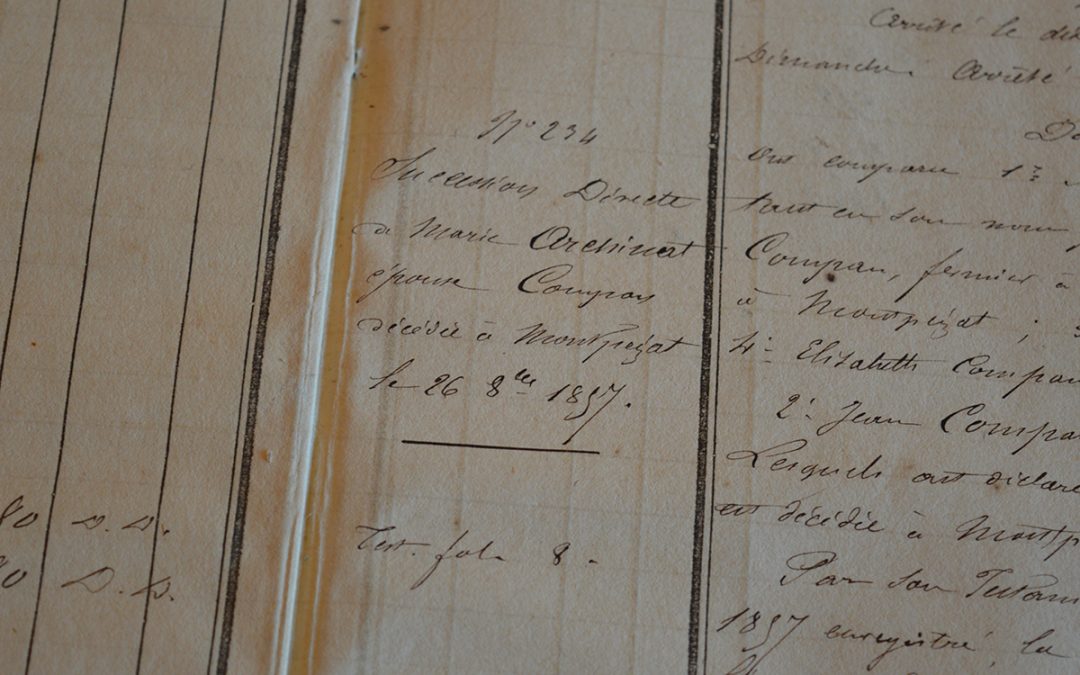 80 D. D.
90 D. D.
N° 234
Succession Directe
de Marie Archinart
épouse Compan
décédée à Montpezat
le 26 8bre 1857.
Test. fol. 8.
Arrêté le dix
Dimanche Arrêté
ont comparu 1°
tant en son nom
Compan, fermier à
à Montpezat ;
4° Elisabeth Compan
2° Jean Compan
Lesquels ont déclaré
est décédée à Montp
Par son Testam
1857 enregistré, la